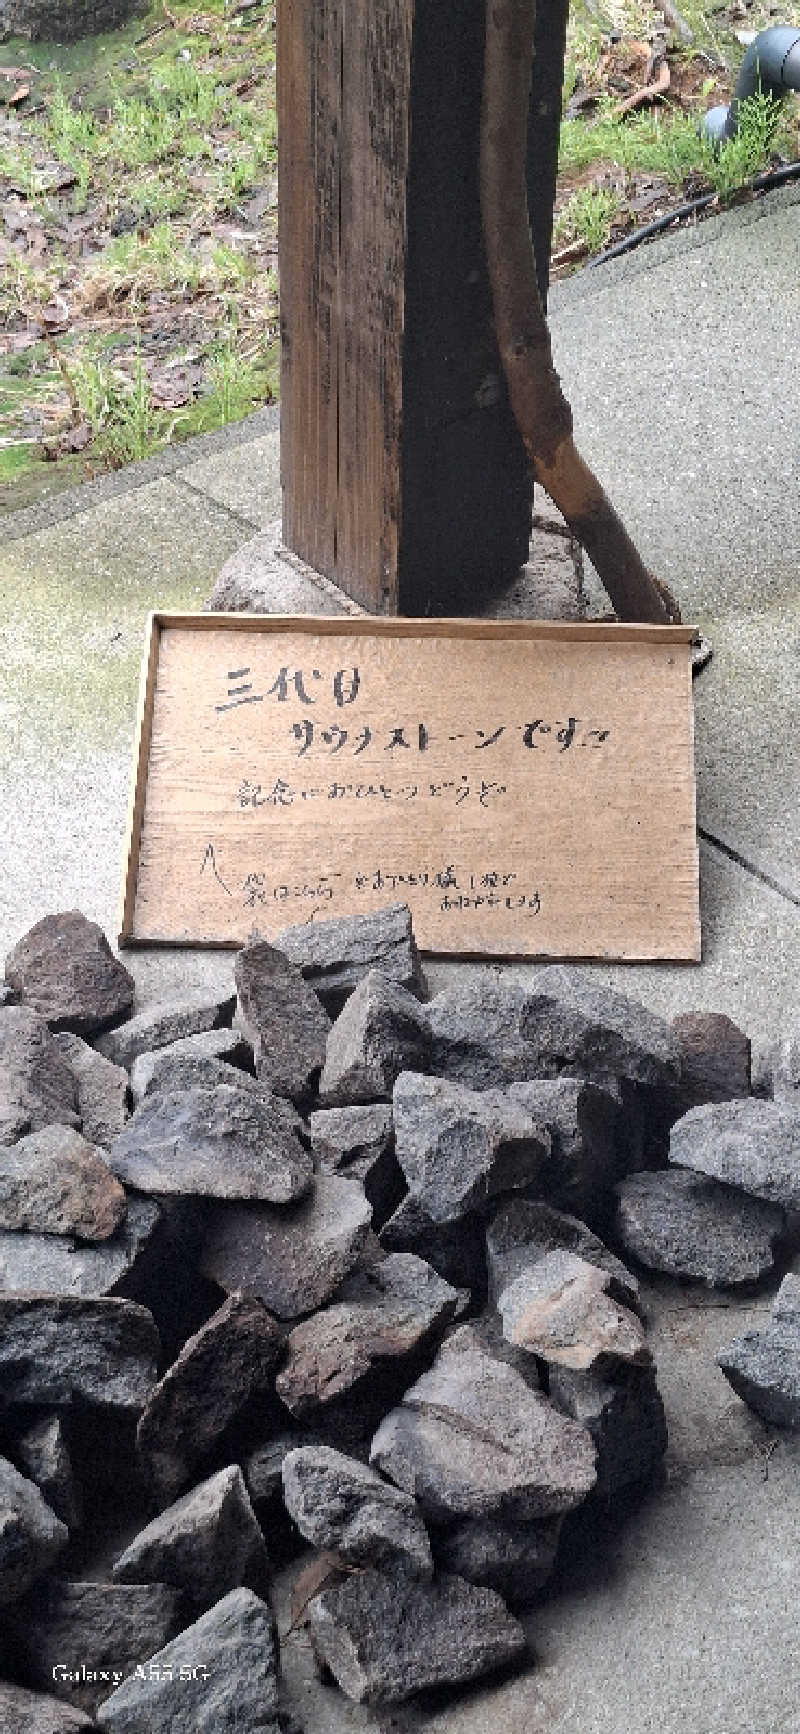 三代目
サウナストーンです。
記念におひとつどうぞ。
袋はこちら ※お1人様1個で
お願いします
Galaxy A55 5G